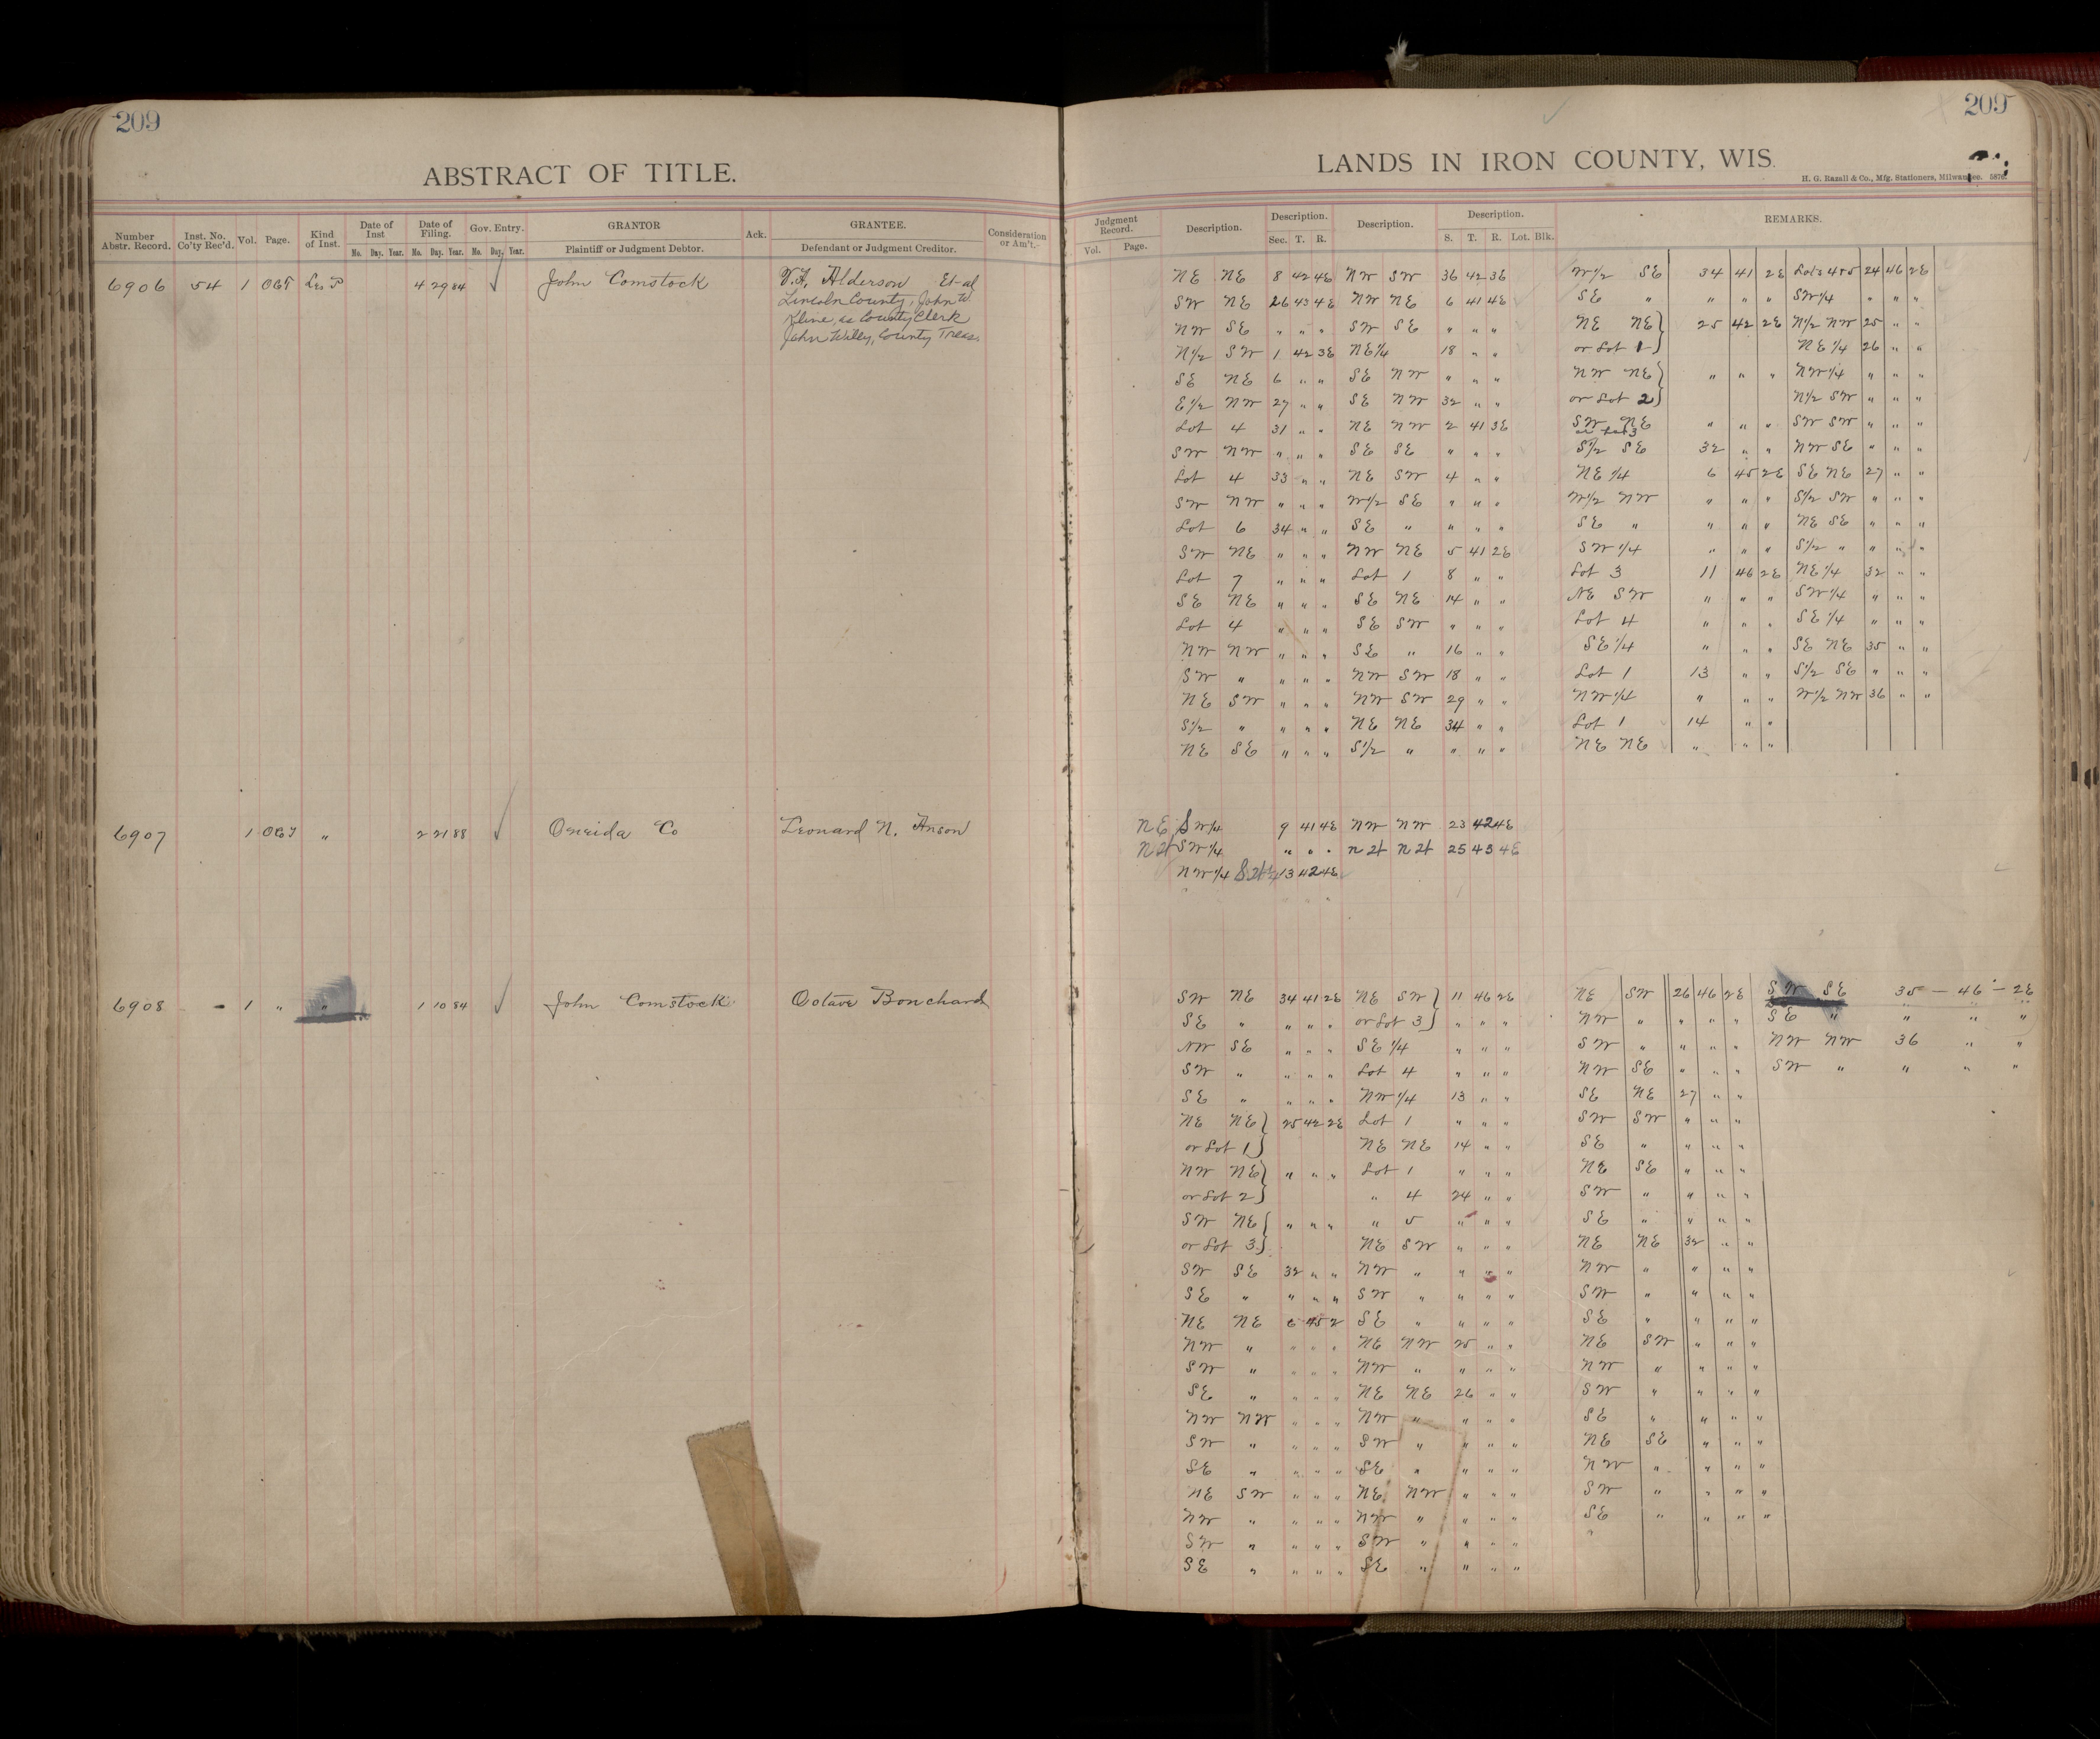 209
ABSTRACT OF TITLE.
Number Abstr. Record. Inst. No. Co'ty Rec'd. Vol. Page. Kind of Inst. Date of Inst Date of Filing. Gov. Entry. GRANTOR Ack. GRANTEE. Consideration or Am't.
Mo. Day. Year. Mo. Day. Year. Mo. Day. Year. Plaintiff or Judgment Debtor. Defendant or Judgment Creditor.
6906 54 1 Lis P 4 29 84 ✓ John Comstock Alderson Et-al
Lincoln County, John W.
Kline, as County Clerk
John Willy, County Treas.
6907 1 " 2 21 88 ✓ Oneida Co Leonard N. Anson
6908 - 1 " " 1 10 84 ✓ John Comstock Octave Bonchard
209
LANDS IN IRON COUNTY, WIS.
H. G. Razall & Co., Mfg. Stationers, Milwaukee. 5876.
Judgment Record. Description. Description. Description. Description. REMARKS.
Vol. Page. Sec. T. R. S. T. R. Lot. Blk.
NE NE 8 42 4E NW SW 36 42 3E W1/2 SE 34 41 2E Lots 4&5 24 46 2E
SW NE 26 43 4E NW NE 6 41 4E SE " " " " SW1/4 " " "
NW SE " " " SW SE " " " NE NE} 25 42 2E N1/2 NW 25 " "
N1/2 SW 1 42 3E NE1/4 18 " " or Lot 1} NE 1/4 26 " "
SE NE 6 " " SE NW " " " NW NE} " " " NW1/4 " " "
E1/2 NW 27 " " SE NW 32 " " or Lot 2} N1/2 SW " " "
Lot 4 31 " " NE NW 2 41 3E SW NE " " " SW SW " " "
or Lot 3
SW NW " " " SE SE " " " S1/2 SE 32 " " NW SE " " "
Lot 4 33 " " NE SW 4 " " NE 1/4 6 45 2E SE NE 27 " "
SW NW " " " W1/2 SE " " " W1/2 NW " " " S1/2 SW " " "
Lot 6 34 " " SE " " " " SE " " " " NE SE " " "
SW NE " " " NW NE 5 41 2E SW 1/4 " " " S1/2 " " " "
Lot 7 " " " Lot 1 8 " " Lot 3 11 46 2E NE 1/4 32 " "
SE NE " " " SE NE 14 " " NE SW " " " SW 1/4 " " "
Lot 4 " " " SE SW " " " Lot 4 " " " SE 1/4 " " "
NW NW " " " SE " 16 " " SE 1/4 " " " SE NE 35 " "
SW " " " " NW SW 18 " " Lot 1 13 " " S1/2 SE " " "
NE SW " " " NW SW 29 " " NW1/4 " " " W1/2 NW 36 " "
S1/2 " " " " NE NE 34 " " Lot 1 14 " "
NE SE " " " S1/2 " " " " NE NE " " "
NE SW1/4 9 41 4E NW NW 23 42 4E
SW1/4 " " " 25 43 4E
NW1/4 13 42 4E
SW NE 34 41 2E NE SW} 11 46 2E NE SW 26 46 2E SW SE 35 - 46 - 2E
SE " " " " or Lot 3} " " " NW " " " " SE " " " "
NW SE " " " SE 1/4 " " " SW " " " " NW NW 36 " "
SW " " " " Lot 4 " " " NW SE " " " SW " " " "
SE " " " " NW 1/4 13 " " SE NE 27 " "
NE NE} 25 42 2E Lot 1 " " " SW SW " " "
or Lot 1} NE NE 14 " " SE " " " "
NW NE} " " " Lot 1 " " " NE SE " " "
or Lot 2} " 4 24 " " SW " " " "
SW NE} " " " " 5 " " " SE " " " "
or Lot 3} NE SW " " " NE NE 32 " "
SW SE 32 " " NW " " " " NW " " " "
SE " " " " SW " " " " SW " " " "
NE NE 6 45 2 SE " " " " SE " " " "
NW " " " " NE NW 25 " " NE SW " " "
SW " " " " NW " " " " NW " " " "
SE " " " " NE NE 26 " " SW " " " "
NW NW " " " NW " " " " SE " " " "
SW " " " " SW " " " " NE SE " " "
SE " " " " SE " " " " NW " " " "
NE SW " " " NE NW " " " SW " " " "
NW " " " " NW " " " " SE " " " "
SW " " " " SW " " " "
SE " " " " SE " " " "